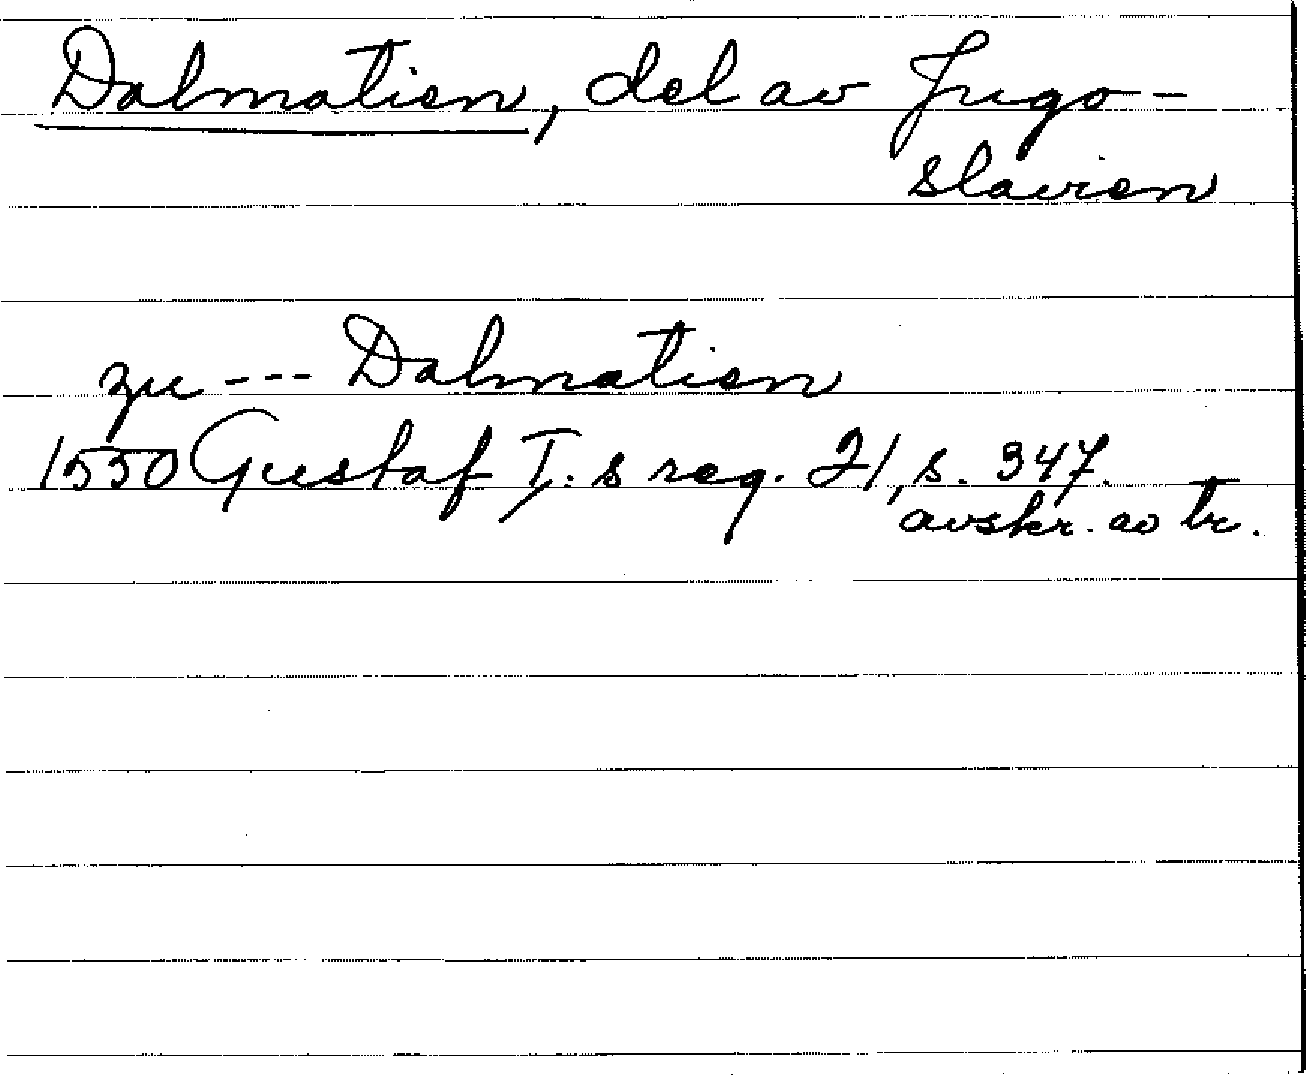 Dalmatien, del av Jugo-
slavien
zu --- Dalmatien
1550 Gustaf I:s reg. 21, s. 347.
avskr. av tr.